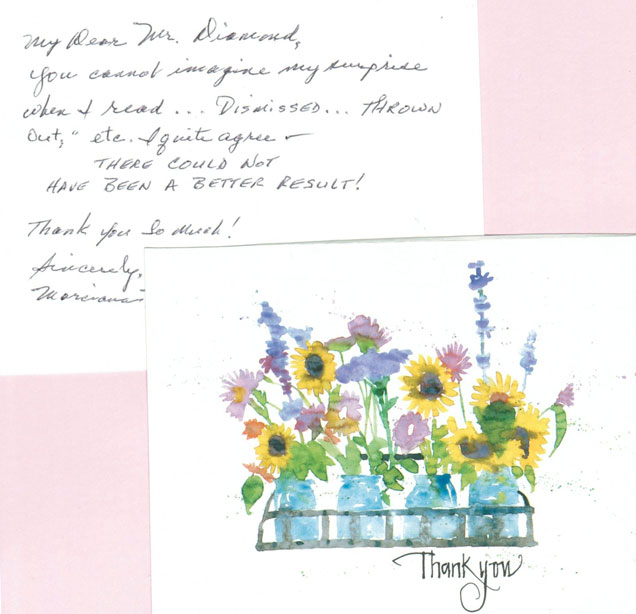 My Dear Mr. Diamond,
you cannot imagine my surprise
when I read ... DISMISSED... THROWN
OUT," etc. I quite agree –
THERE COULD NOT
HAVE BEEN A BETTER RESULT!
Thank you so much!
Sincerely,
Thank you